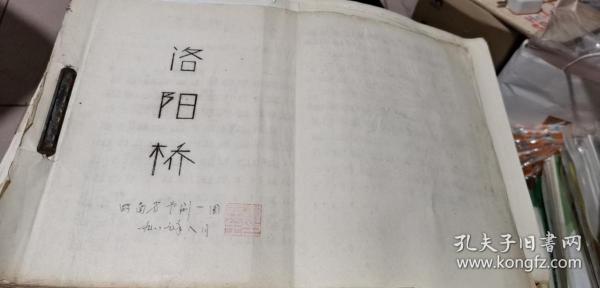 洛
阳
桥
河南省豫剧一团
一九八〇年八月
孔夫子旧书网
www.kongfz.com